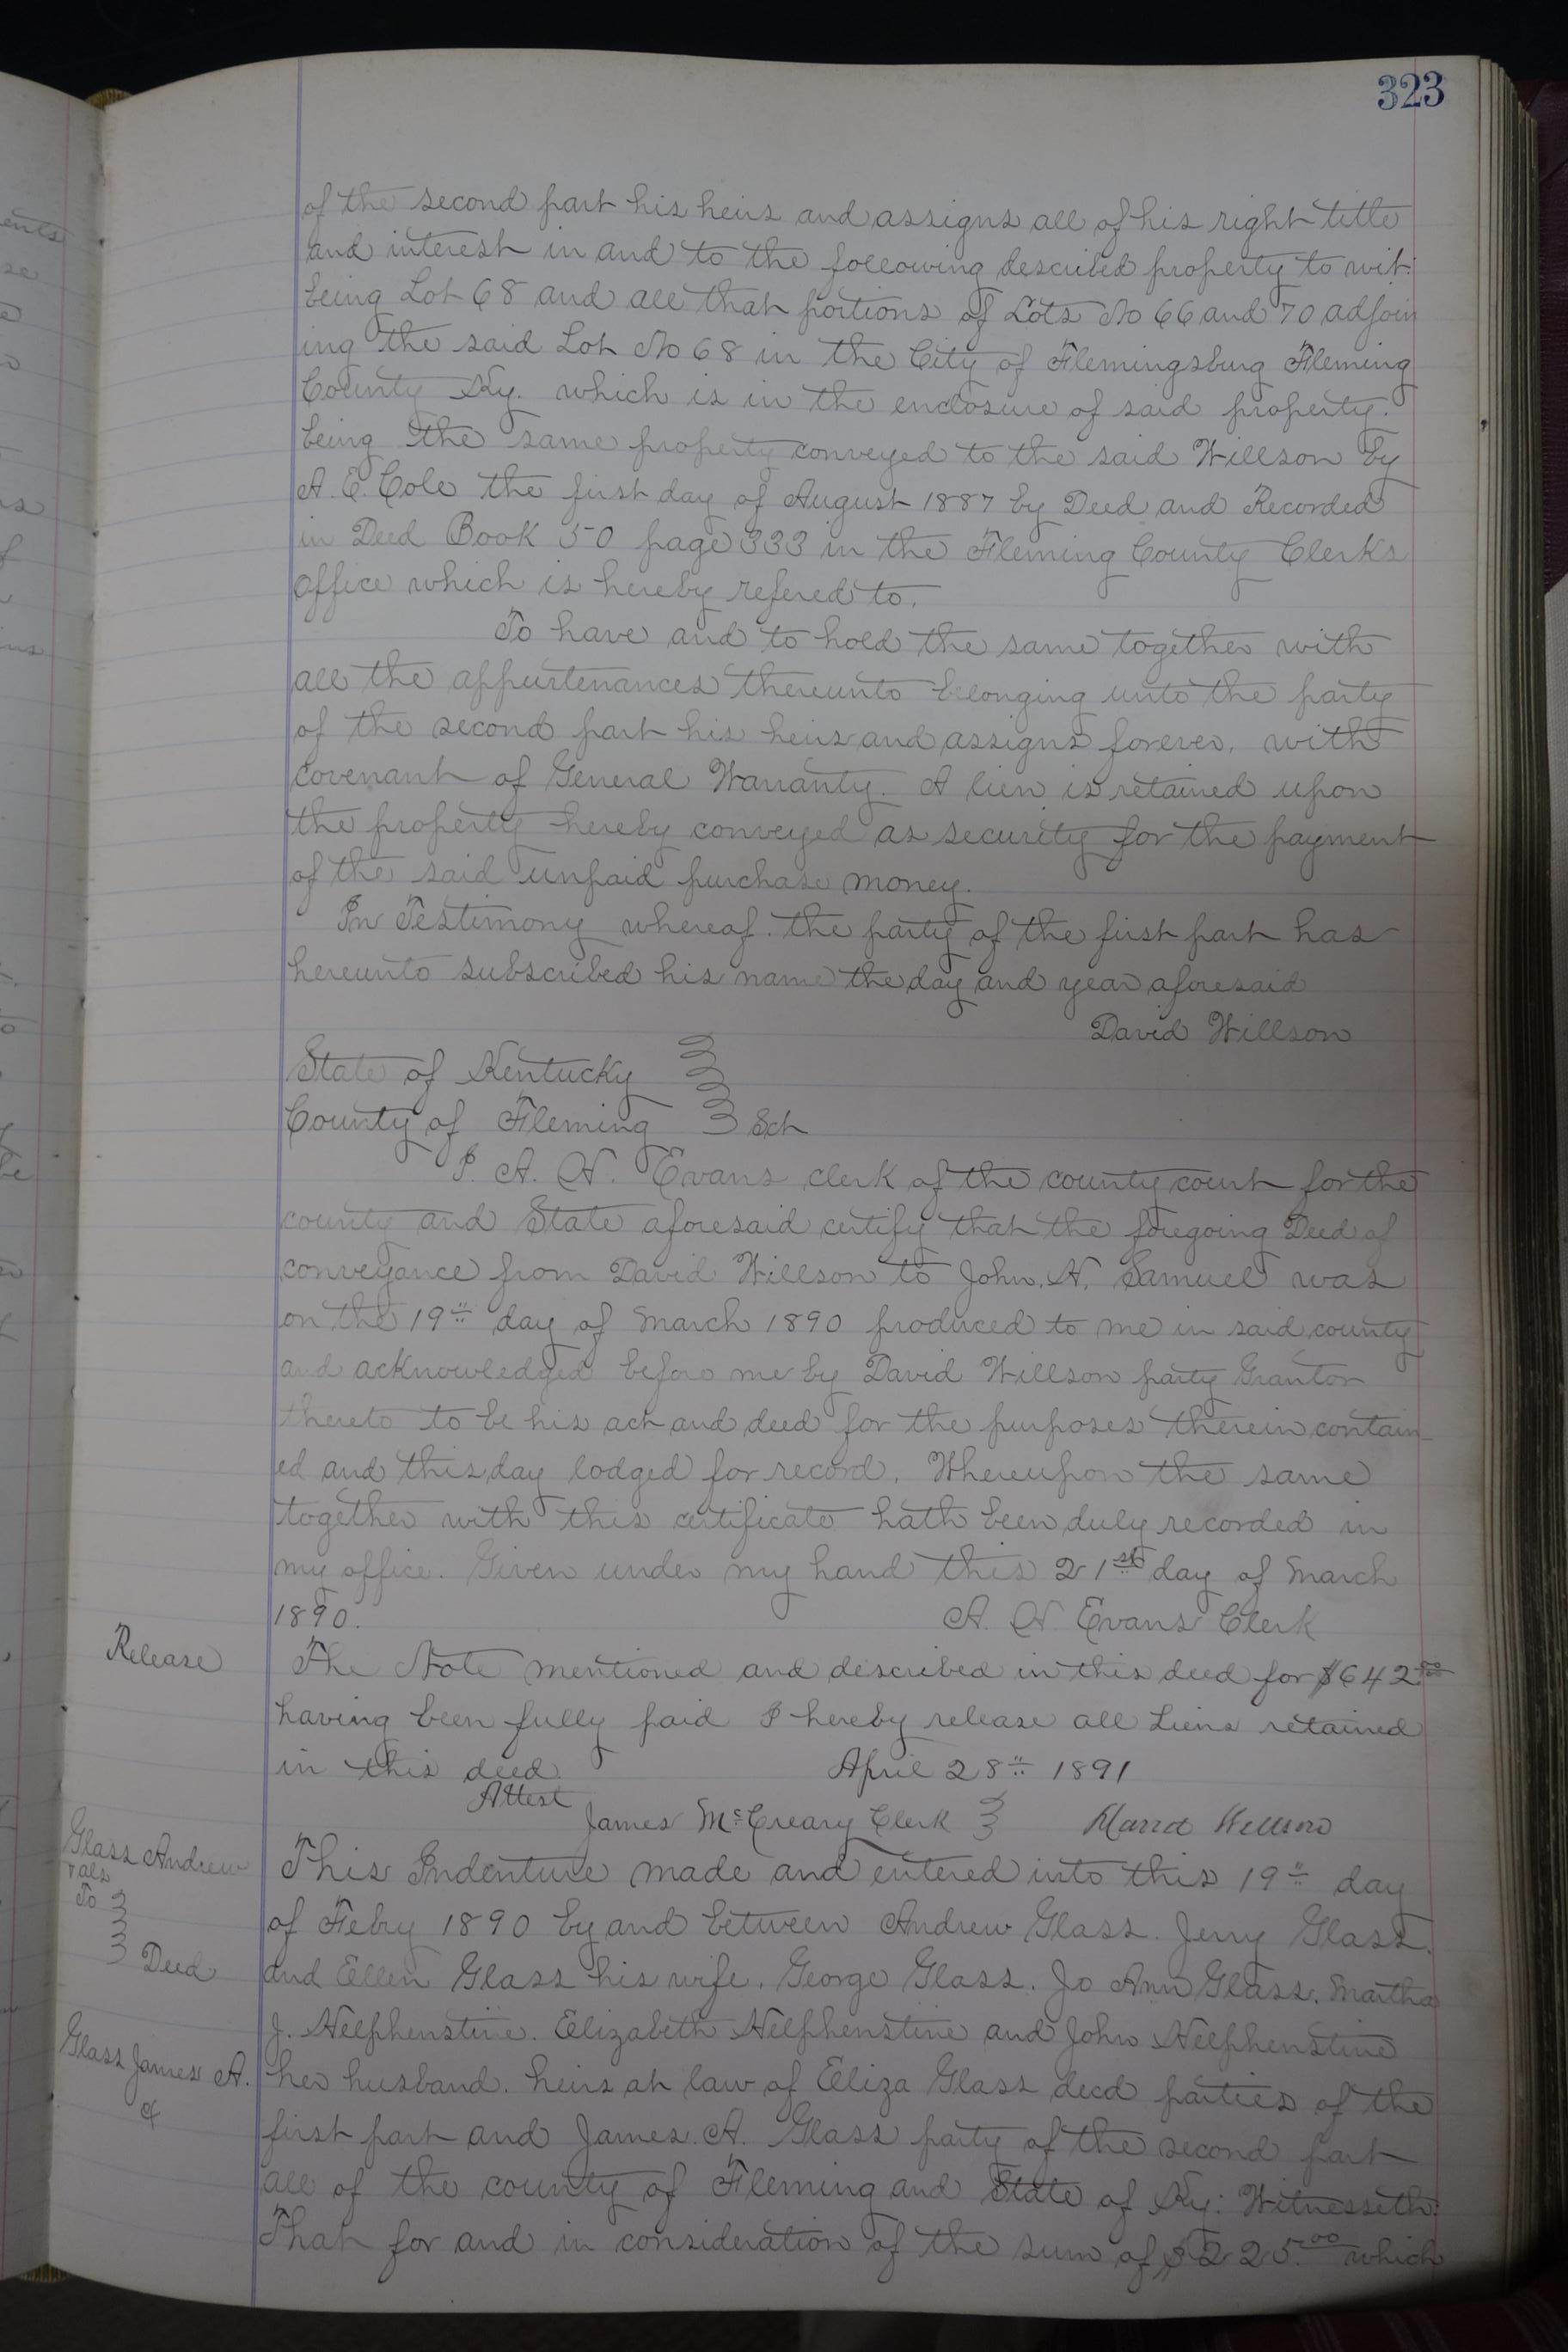 323
of the second part his heirs and assigns all of his right title
and interest in and to the following described property to wit:
being Lot 68 and all that portions of Lots No 66 and 70 adjoin
ing the said Lot No 68 in the City of Flemingsburg Fleming
County Ky. which is in the enclosure of said property.
being the same property conveyed to the said Willson by
A. E. Cole the first day of August 1887 by Deed and Recorded
in Deed Book 50 page 333 in the Fleming County Clerks
office which is hereby refered to.
To have and to hold the same together with
all the appurtenances thereunto belonging unto the party
of the second part his heirs and assigns forever, with
covenant of General Warranty. A lien is retained upon
the property hereby conveyed as security for the payment
of the said unpaid purchase money.
In Testimony whereof. the party of the first part has
hereunto subscribed his name the day and year aforesaid
David Willson
State of Kentucky
County of Fleming } Sct
I. A. H. Evans clerk of the county court for the
county and State aforesaid certify that the foregoing Deed of
conveyance from David Willson to John. H. Samuel was
on the 19th day of March 1890 produced to me in said county
and acknowledged before me by David Willson party Grantor
thereto to be his act and deed for the purposes therein contain-
ed and this day lodged for record. Whereupon the same
together with this certificate hath been duly recorded in
my office. Given under my hand this 21st day of March
1890. A. H. Evans Clerk
Release
The Note mentioned and described in this deed for $642.00
having been fully paid I hereby release all Liens retained
in this deed. April 28th 1891
Attest
James McCreary Clerk } David Willson
Glass Andrew
& als
To }
Deed
Glass James A.
This Indenture made and entered into this 19th day
of Feby 1890 by and between Andrew Glass. Jerry Glass.
and Ellen Glass his wife. George Glass. Jo Ann Glass. Martha
J. Helphenstine. Elizabeth Helphenstine and John Helphenstine
her husband. heirs at law of Eliza Glass decd parties of the
first part and James. A. Glass party of the second part
all of the county of Fleming and State of Ky: Witnesseth:
That for and in consideration of the sum of $225.00 which